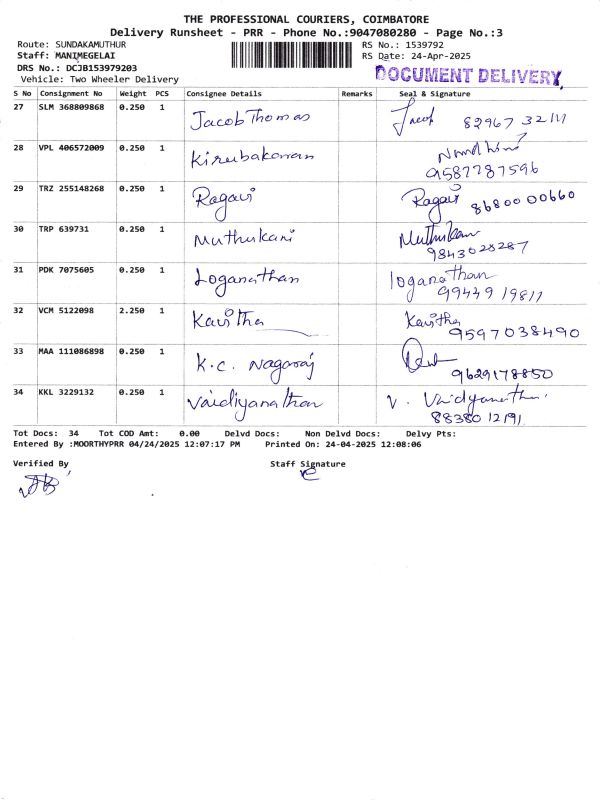 THE PROFESSIONAL COURIERS, COIMBATORE
Delivery Runsheet - PRR - Phone No.:9047080280 - Page No.:3
Route: SUNDAKAMUTHUR RS No.: 1539792
Staff: MANIMEGELAI RS Date: 24-Apr-2025
DRS No.: DCJB153979203 DOCUMENT DELIVERY
Vehicle: Two Wheeler Delivery
S No Consignment No Weight PCS Consignee Details Remarks Seal & Signature
27 SLM 368809868 0.250 1 Jacob Thomas Jacob
28 VPL 406572009 0.250 1 Kirubakaran
9587787596
29 TRZ 255148268 0.250 1 Ragavi Ragavi 8680000660
30 TRP 639731 0.250 1 Muthukani
9843028287
31 PDK 7075605 0.250 1 Loganathan loganathan
99449 19811
32 VCM 5122098 2.250 1 Kavitha Kavitha
9597038490
33 MAA 111086898 0.250 1 K.C. Nagaraj
9629178850
34 KKL 3229132 0.250 1 Vaidiyanathan V. Vaidyanathan
88380 12191
Tot Docs: 34 Tot COD Amt: 0.00 Delvd Docs: Non Delvd Docs: Delvy Pts:
Entered By :MOORTHYPRR 04/24/2025 12:07:17 PM Printed On: 24-04-2025 12:08:06
Verified By Staff Signature